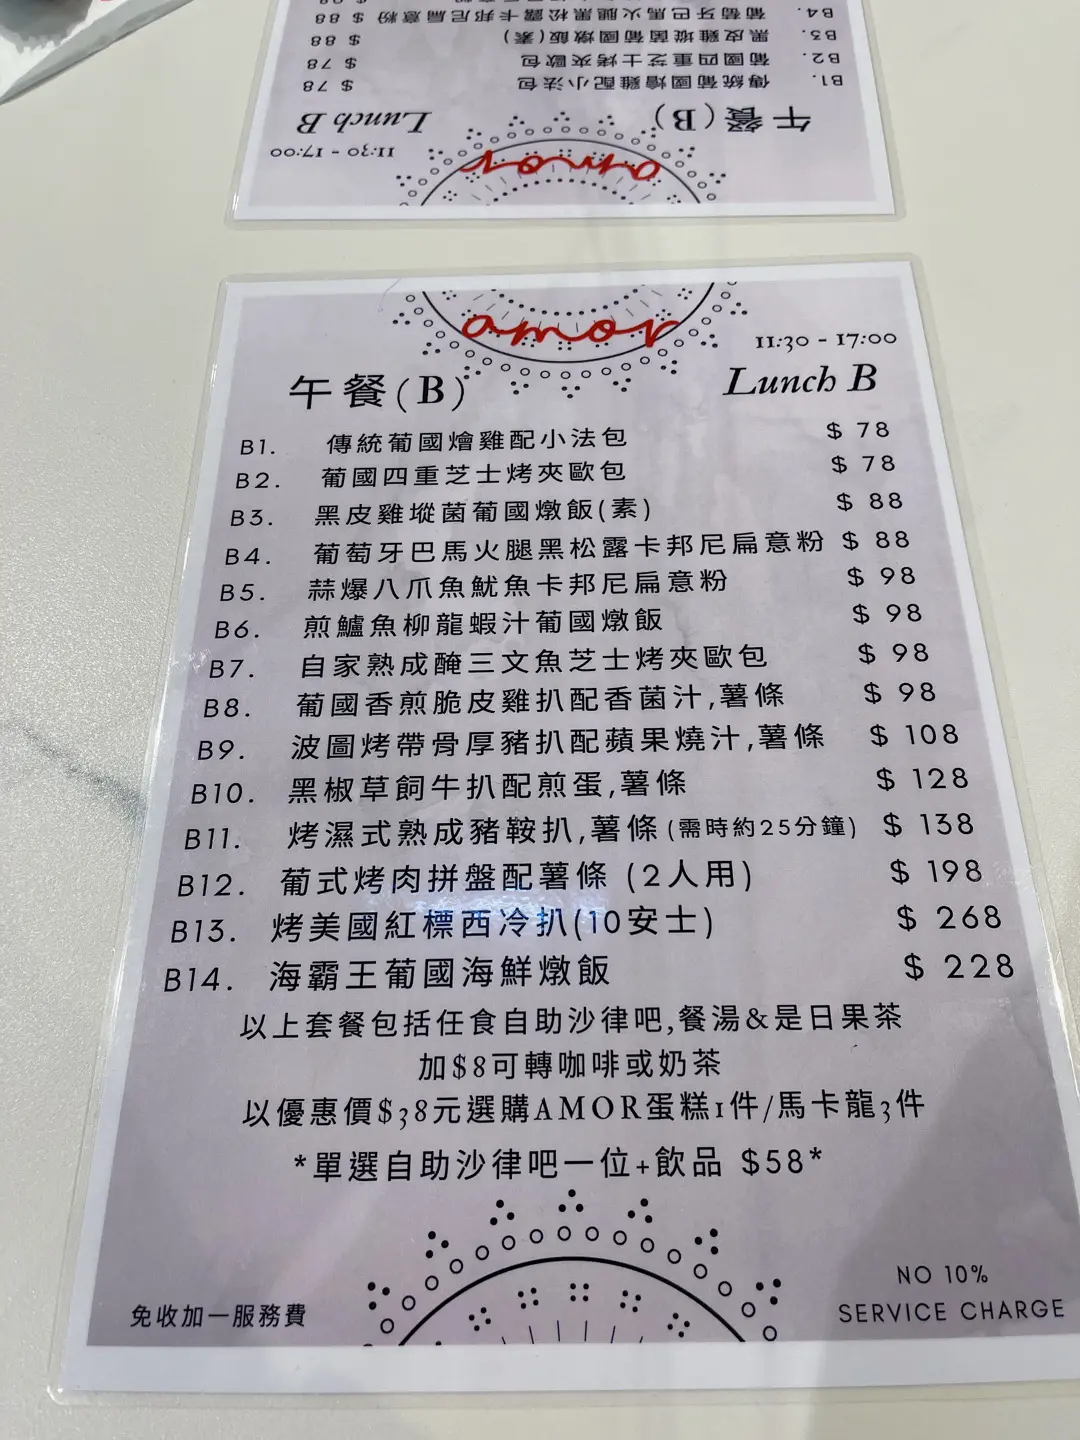 B4. 葡萄牙巴馬火腿黑松露卡邦尼扁意粉 $ 88
B3. 黑皮雞樅菌葡國燉飯(素) $ 88
B2. 葡國四重芝士烤夾歐包 $ 78
B1. 傳統葡國燴雞配小法包 $ 78
午餐(B) Lunch B
11:30 - 17:00
amor
amor
11:30 - 17:00
午餐(B) Lunch B
B1. 傳統葡國燴雞配小法包 $ 78
B2. 葡國四重芝士烤夾歐包 $ 78
B3. 黑皮雞樅菌葡國燉飯(素) $ 88
B4. 葡萄牙巴馬火腿黑松露卡邦尼扁意粉 $ 88
B5. 蒜爆八爪魚魷魚卡邦尼扁意粉 $ 98
B6. 煎鱸魚柳龍蝦汁葡國燉飯 $ 98
B7. 自家熟成醃三文魚芝士烤夾歐包 $ 98
B8. 葡國香煎脆皮雞扒配香菌汁,薯條 $ 98
B9. 波圖烤帶骨厚豬扒配蘋果燒汁,薯條 $ 108
B10. 黑椒草飼牛扒配煎蛋,薯條 $ 128
B11. 烤濕式熟成豬鞍扒,薯條(需時約25分鐘) $ 138
B12. 葡式烤肉拼盤配薯條 (2人用) $ 198
B13. 烤美國紅標西冷扒(10安士) $ 268
B14. 海霸王葡國海鮮燉飯 $ 228
以上套餐包括任食自助沙律吧,餐湯&是日果茶
加$8可轉咖啡或奶茶
以優惠價$38元選購AMOR蛋糕1件/馬卡龍3件
*單選自助沙律吧一位+飲品 $58*
免收加一服務費
NO 10%
SERVICE CHARGE